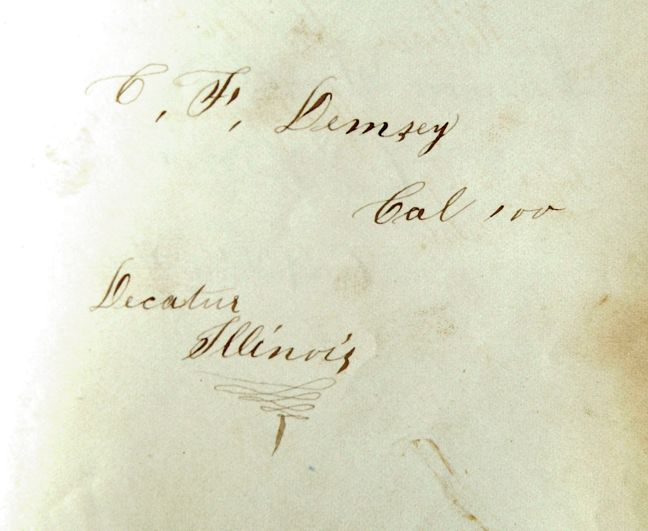 C, F, Demsey
Cal 100
Decatur
Illinois